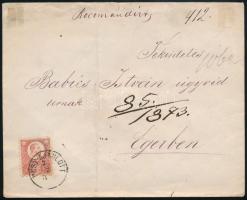 Recomandirv
912.
Tekintetes
Babics István ügyvéd
úrnak
85./1873.
Egerben